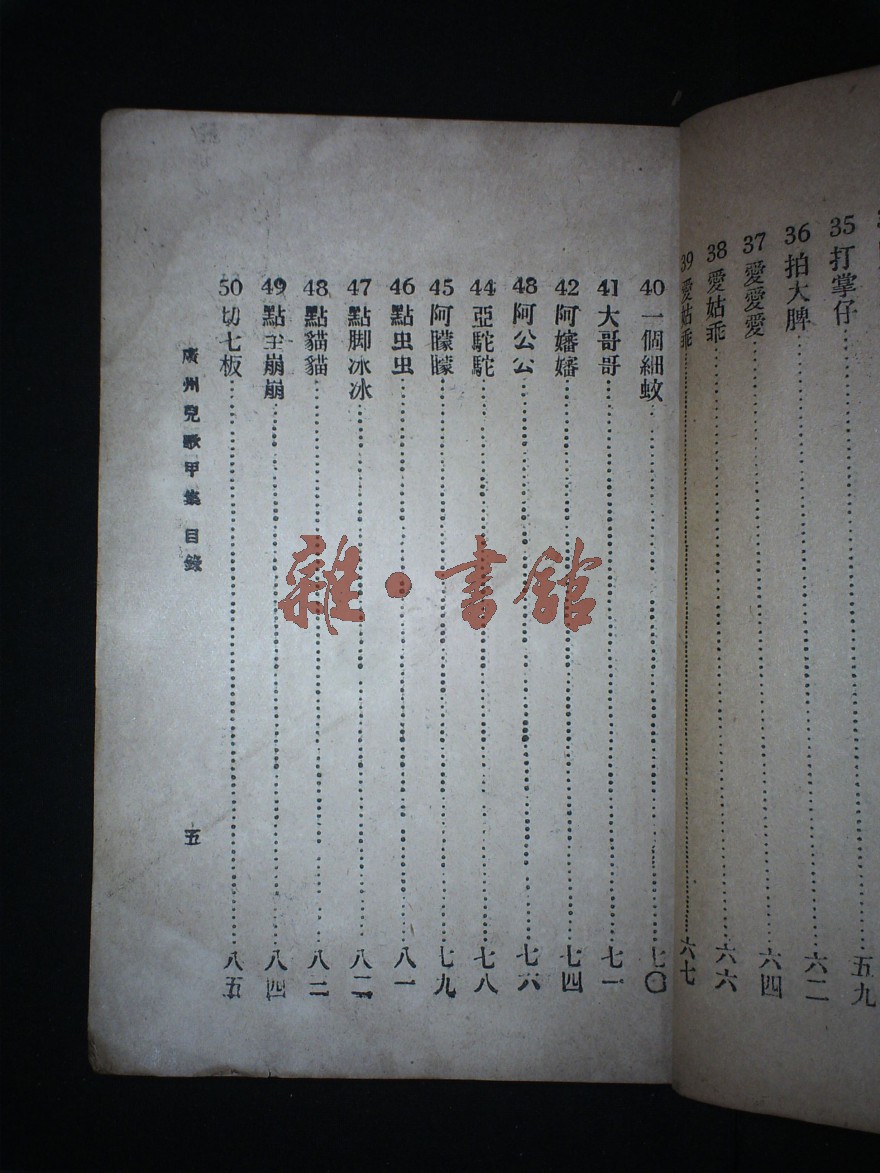 35 打掌仔 五九
36 拍大脾 六二
37 愛愛愛 六四
38 愛姑乖 六六
39 愛姑乖 六七
40 一個細蚊 七〇
41 大哥哥 七一
42 阿嬸嬸 七四
48 阿公公 七六
44 亞駝駝 七八
45 阿矇矇 七九
46 點虫虫 八一
47 點脚冰冰 八二
48 點貓貓 八二
49 點 崩崩 八四
50 切七板 八五
廣州兒歌甲集 目錄
五
雜·書館